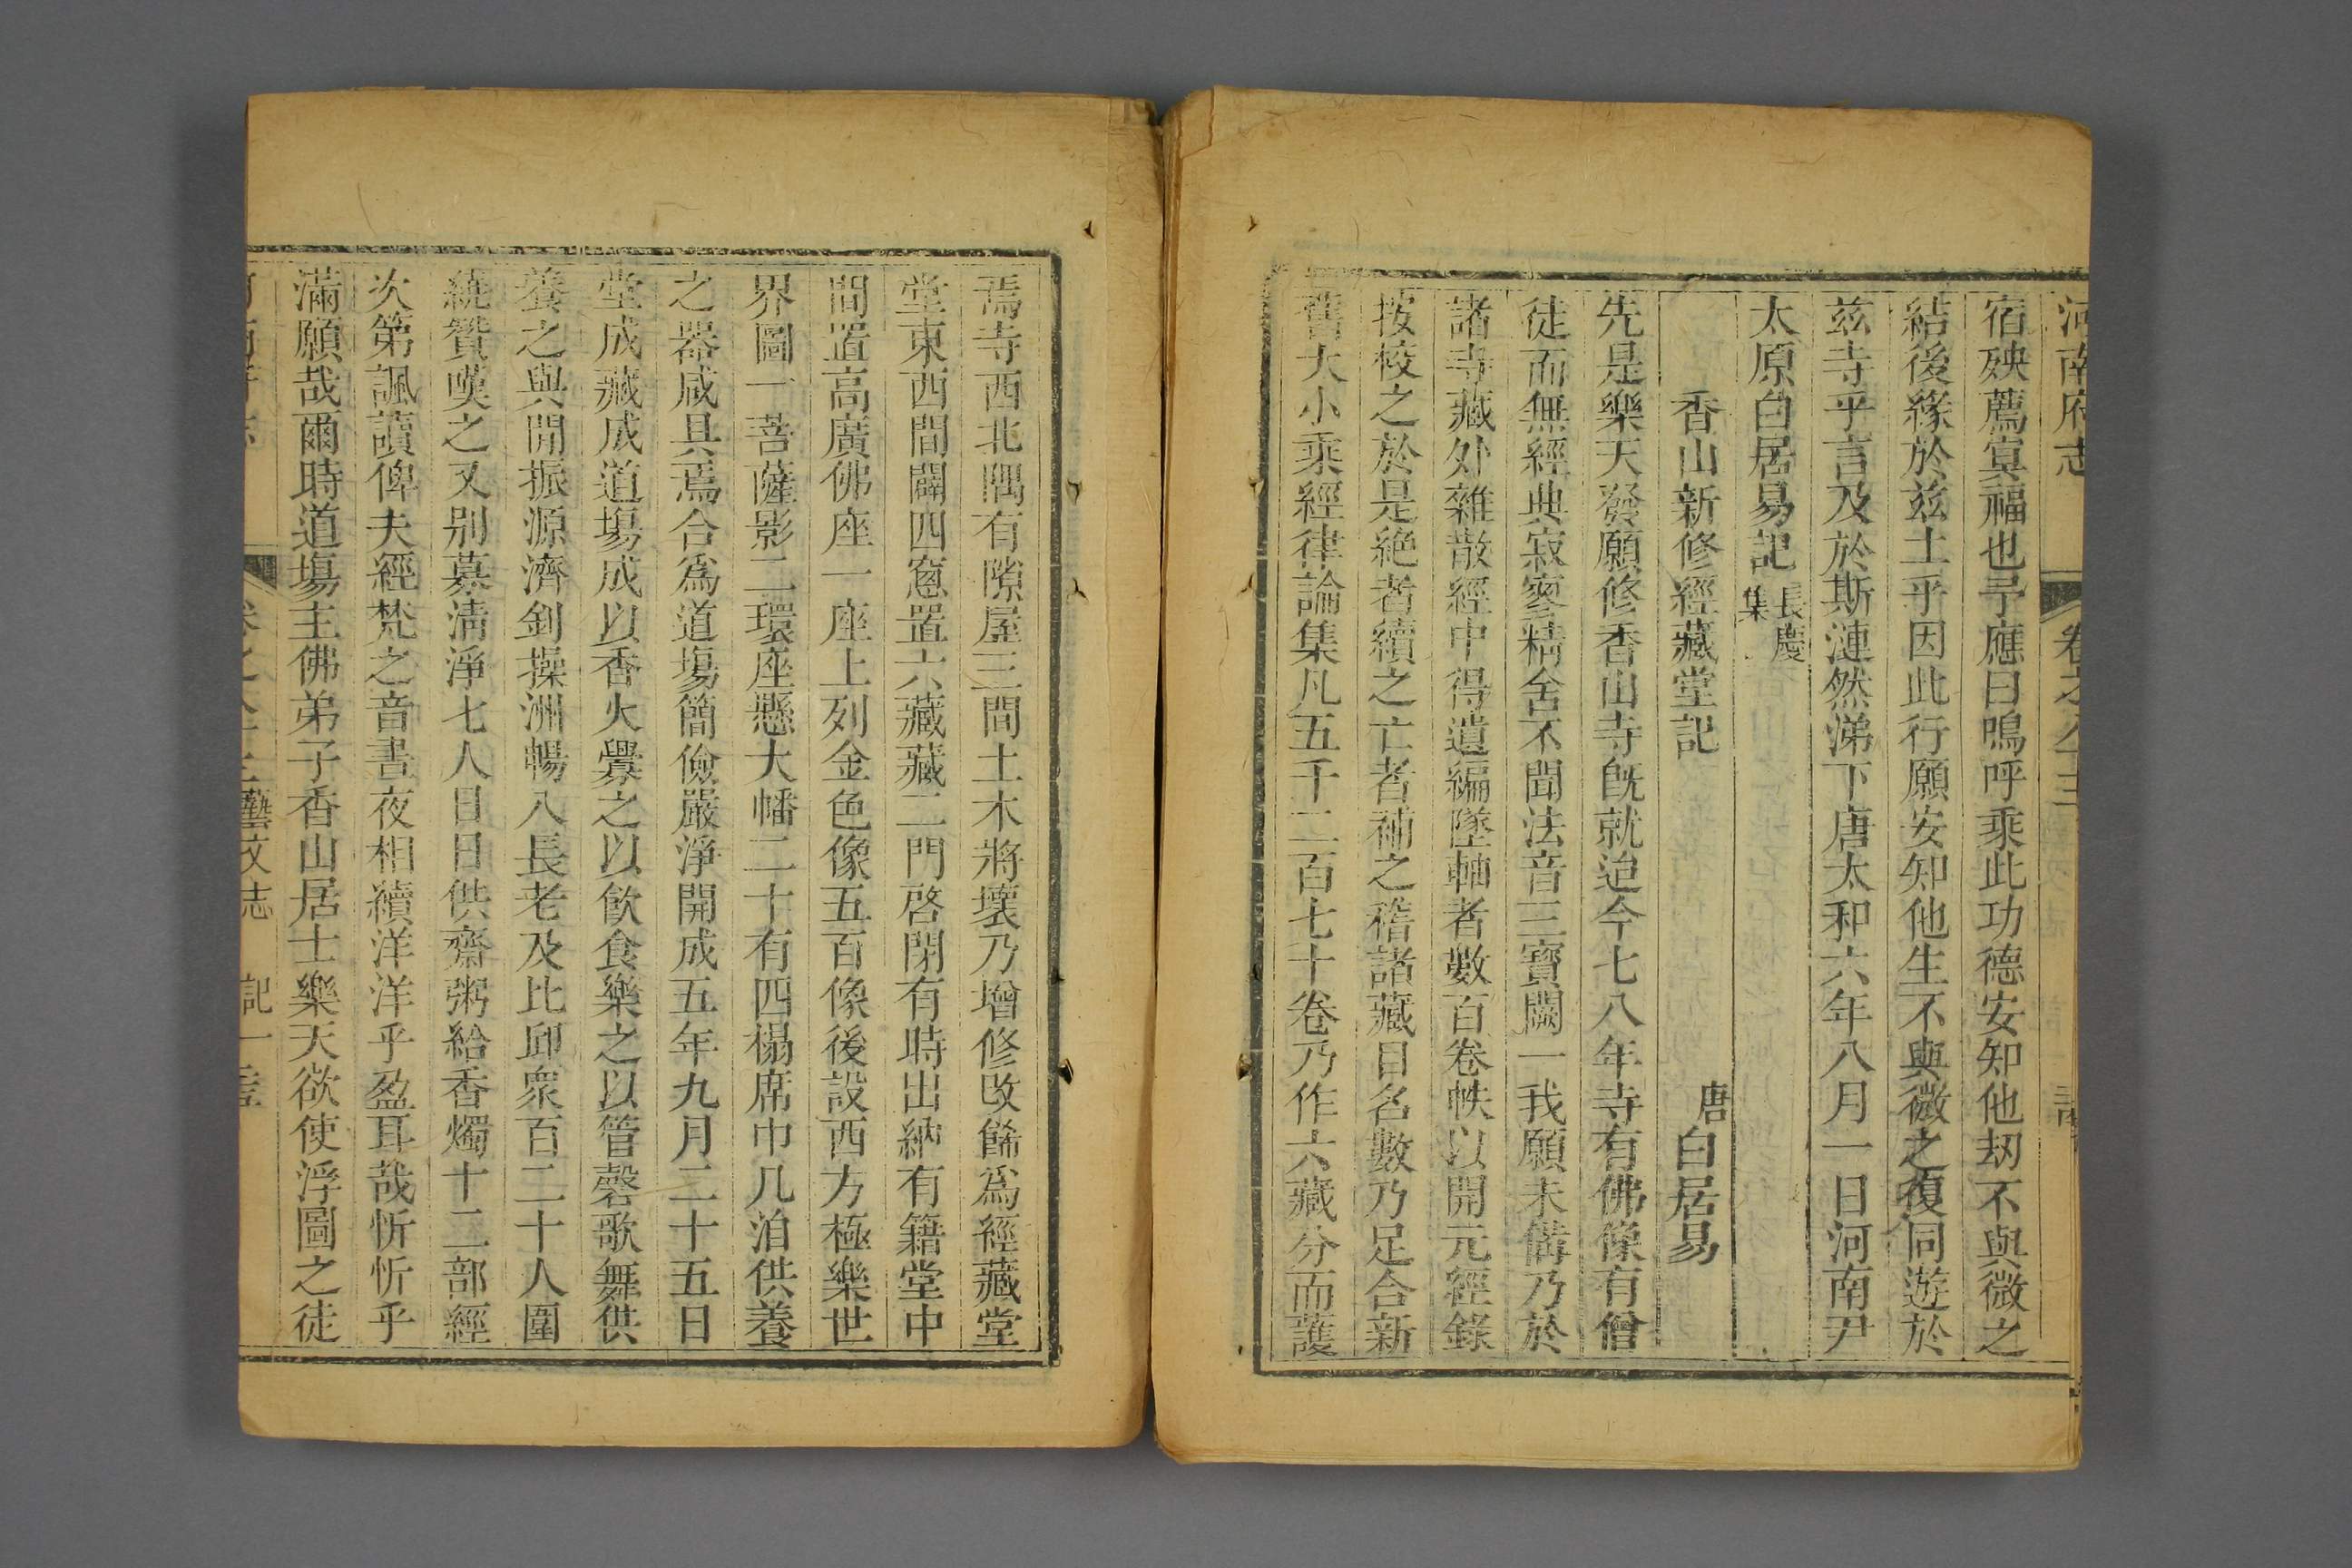 河南府志 卷之八十三
宿殃薦冥福也予應曰嗚呼乘此功德安知他刼不與微之
結後緣於兹土乎因此行願安知他生不與微之復同遊於
兹寺乎言及於斯漣然涕下唐太和六年八月一日河南尹
太原白居易記長慶集
香山新修經藏堂記 唐白居易
先是樂天發願修香山寺旣就迨今七八年寺有佛像有僧
徒而無經典寂寥精舍不聞法音三寶闕一我願未備乃於
諸寺藏外雜散經中得遺編墜軸者數百卷帙以開元經錄
按校之於是絶者續之亡者補之稽諸藏目名數乃足合新
舊大小乘經律論集凡五千二百七十卷乃作六藏分而護
焉寺西北隅有隙屋三間土木將壞乃增修改餙爲經藏堂
堂東西間闢四窻置六藏藏二門啓閉有時出納有籍堂中
間置高廣佛座一座上列金色像五百像後設西方極樂世
界圖一菩薩影二環座懸大幡二十有四榻席巾几洎供養
之器咸具焉合爲道塲簡儉嚴淨開成五年九月二十五日
堂成藏成道塲成以香火釁之以飮食樂之以管磬歌舞供
養之與閒振源濟釗操洲暢八長老及比邱衆百二十人圍
繞贊嘆之又别募清淨七人日日供齋粥給香燭十二部經
次第諷讀俾夫經梵之音晝夜相續洋洋乎盈耳哉忻忻乎
滿願哉爾時道塲主佛弟子香山居士樂天欲使浮圖之徒
藝文志 記一